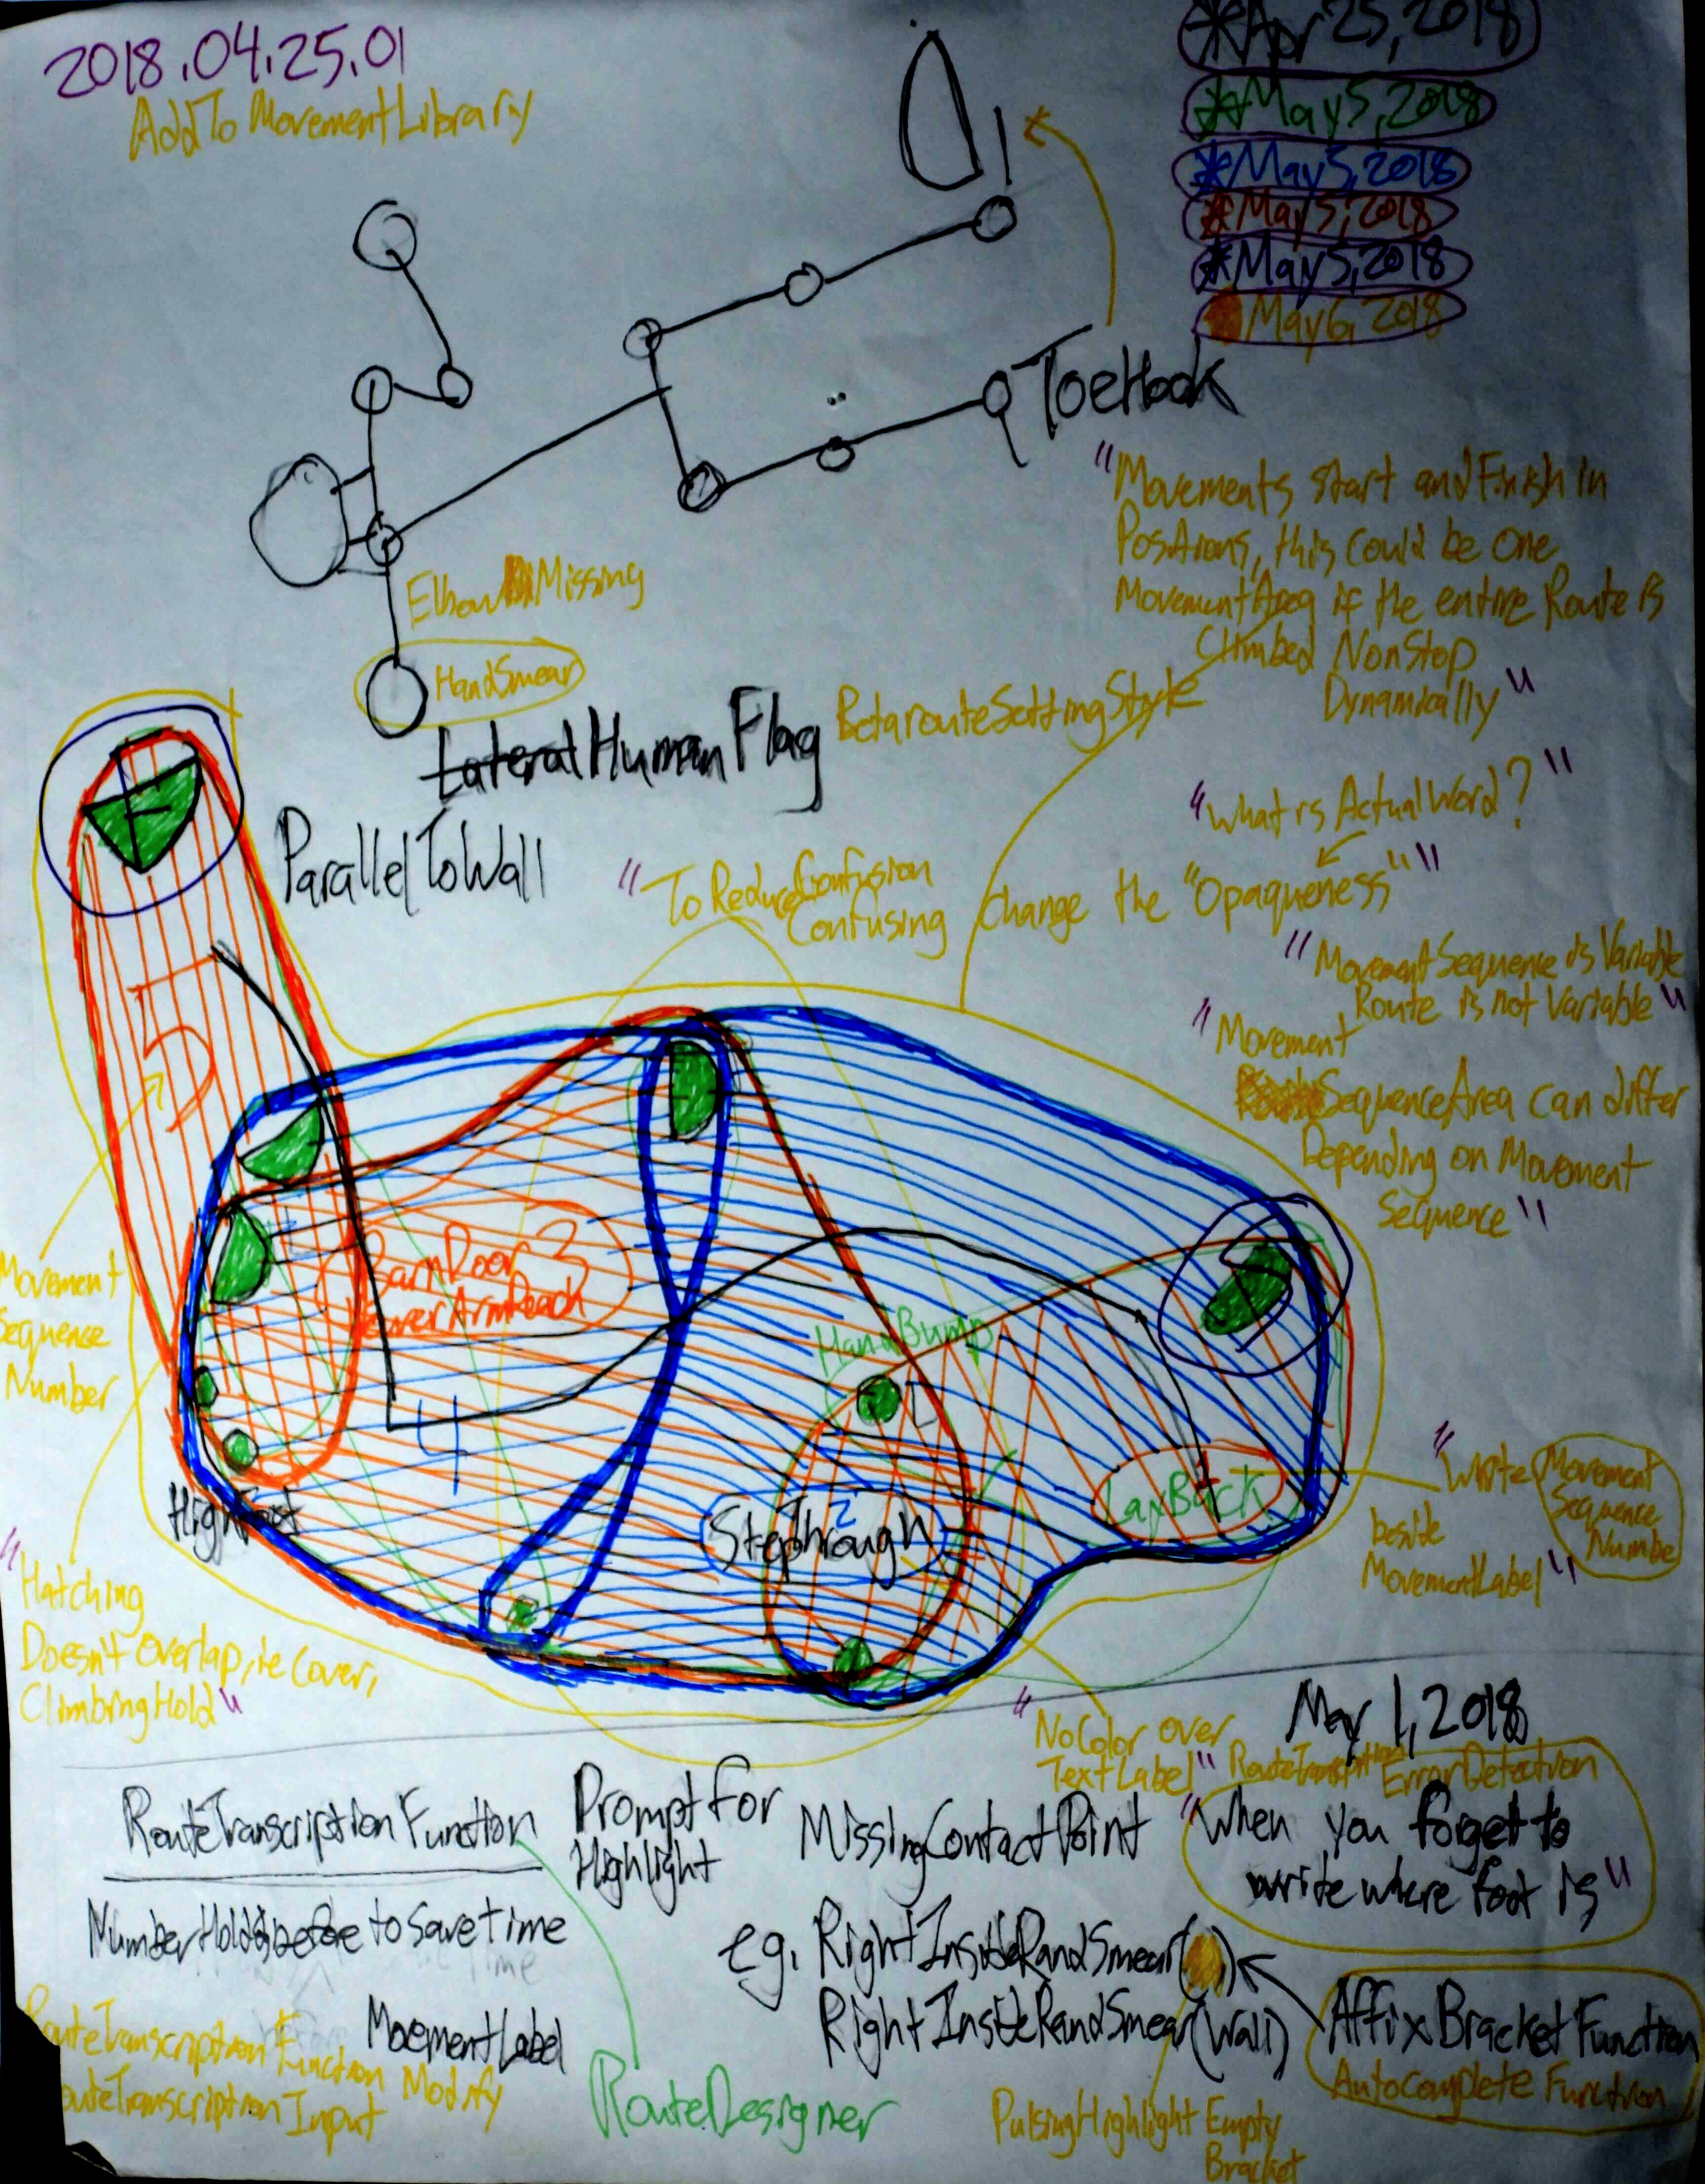 2018.04.25.01
AddToMovementLibrary
*Apr 25, 2018
*May 5, 2018
*May 5, 2018
*May 5, 2018
*May 5, 2018
May 6, 2018
ToeHook
"Movements start and Finish in
this could be one
if the entire Route is
Climbed NonStop
Dynamically"
Elbow Missing
HandSmear
Lateral Human Flag
BetarouteSettingStyle
ParallelToWall
"What is Actual Word?"
"To Reduce Confusion
Confusing
Change the "Opaqueness""
"MovementSequence is Variable
Route is not Variable"
"Movement
SequenceArea can differ
Depending on Movement
Sequence"
F
5
Movement
Sequence
Number
BarnDoor 3
LowerArmReach
HandBump
4
StepThrough
2
LayBack
1
HighFoot
"Write Movement
Sequence
Number
beside
MovementLabel"
"Hatching
Doesn't overlap, ie Cover,
ClimbingHold"
"No Color over
TextLabel"
May 1, 2018
RouteTranscription ErrorDetection
RouteTranscriptionFunction
Prompt For
Highlight
MissingContactPoint
"When you forget to
write where foot is"
NumberHolds before to Save time
eg. RightInsideRandSmear( )
RightInsideRandSmear(Wall)
MovementLabel
AffixBracketFunction
AutoComplete Function
RouteTranscription Function Modify
RouteTranscription Input
RouteDesigner
PulsingHighlight Empty
Bracket